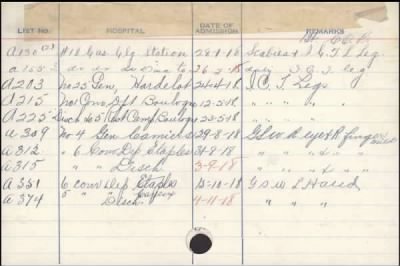 LIST NO. HOSPITAL DATE OF ADMISSION REMARKS
A150 (2) #18 Cas. Clg Station 28-1-18 Scabies & I.C.T. Leg.
A155 2-18 I.C.T. leg
A203 No 25 Gen, Hardelot 24-4-18 I.C.T. Legs
A215 No Conv. Dep Boulogne 12-5-18 " " "
A225 Disch No 5 Rest Camp Boulogne 23-5-18 " " "
A309 No 4 Gen Camiers 29-8-18 G.S.W. R. eye & R finger
A312 " 6 Conv Dep Etaples 31-8-18 " " " " "
A315 " " Disch 3-9-18 " " " " "
A351 6 Conv Dep Etaples 15-10-18 G S W L Hand
A374 5 " Disch Cayeux 4-11-18 " " "